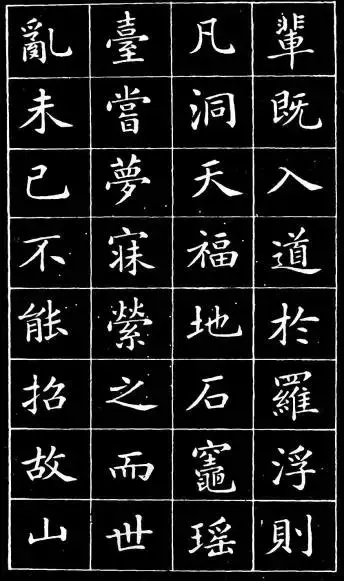 輩既入道於羅浮則
凡洞天福地石竈瑶
臺嘗夢寐縈之而世
亂未已不能招故山